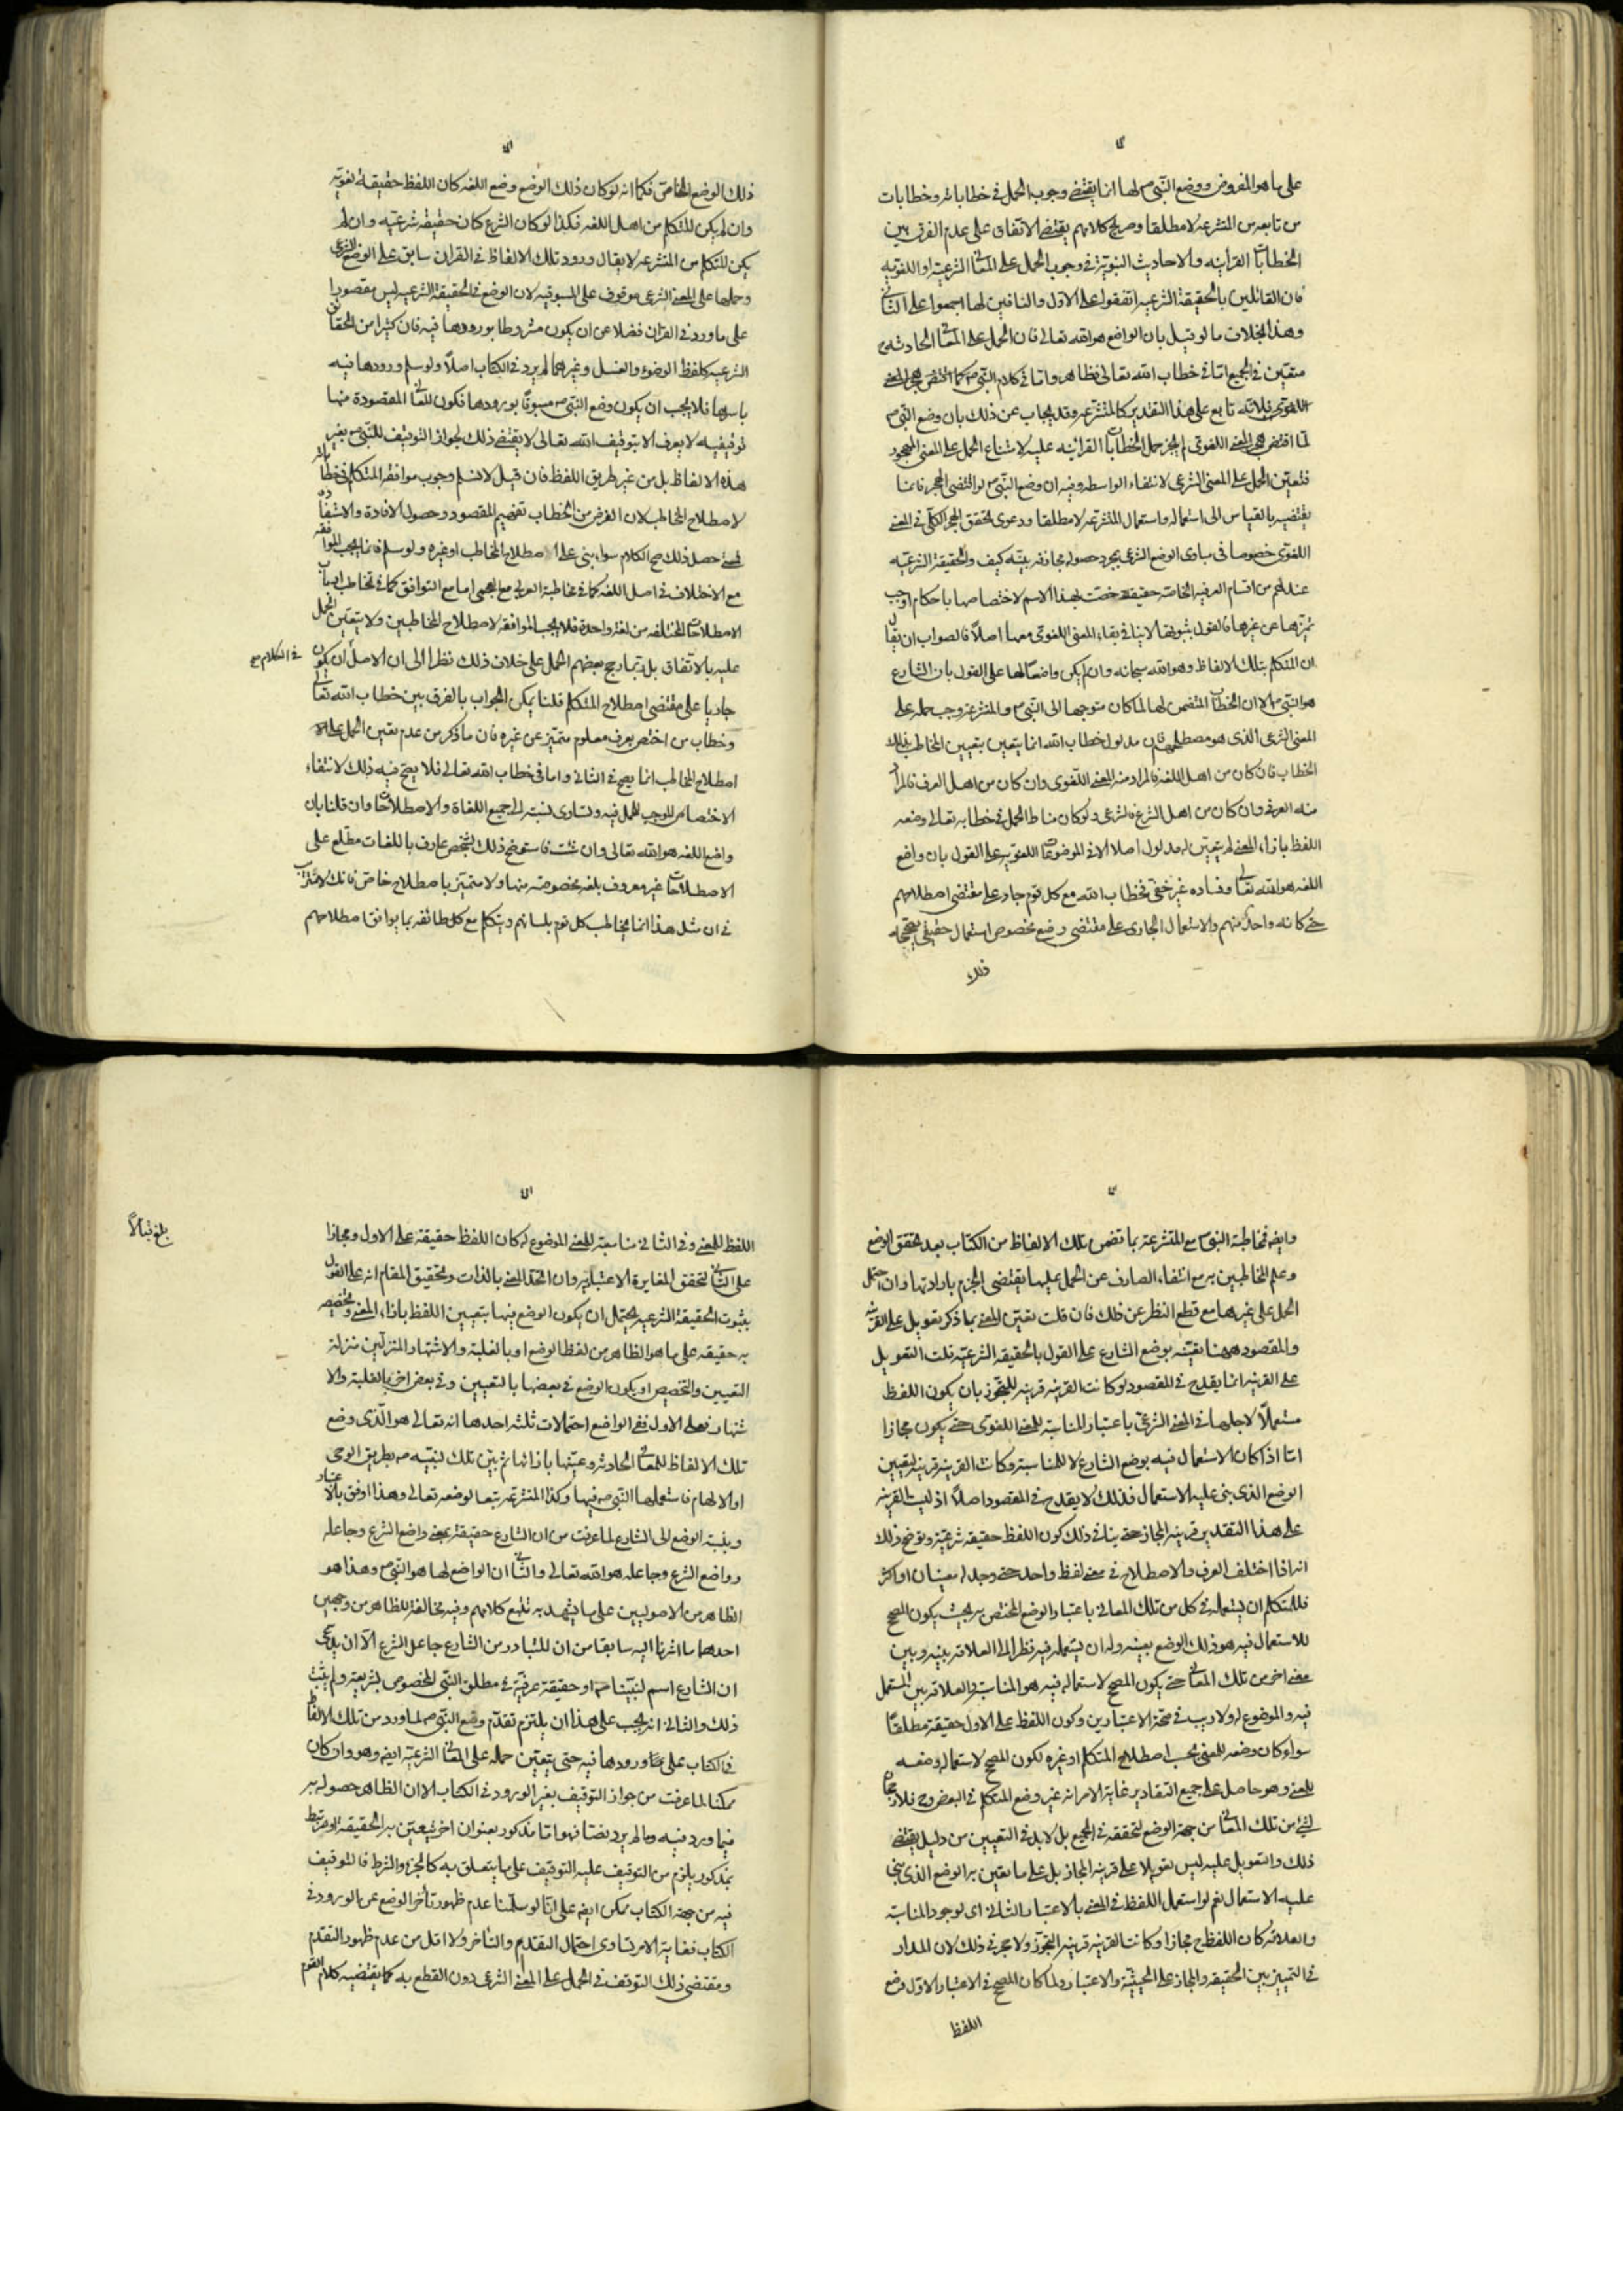 على ما هو المفروض ووضع النبي ص لها انما يقتضي وجوب الحمل في خطاباته وخطابات
من تابعه من المتشرعة لا مطلقا وصريح كلامهم يقتضي الاتفاق على عدم الفرق بين
الخطابات القرآنيه والاحاديث النبوية في وجوب الحمل على المعاني الشرعية او اللغويه
فان القائلين بالحقيقة الشرعيه اتفقوا على الاول والنافين لها اجمعوا على الثاني
وهذا بخلاف ما لو قيل بان الواضع هو الله تعالى فان الحمل على المعاني الحادثه
متعين في الجميع اما في خطاب الله تعالى فظاهر واما في كلام النبي ص
اللغوي فلانه تابع على هذا التقدير كالمتشرعه وقد يجاب عن ذلك بان وضع النبي ص
لما اقتضى هجر المعنى اللغوي لم يجز حمل الخطابات القرانيه عليه لامتناع الحمل على المعنى المهجور
فتعين الحمل على المعنى الشرعي لانتفاء الواسطه وفيه ان وضع النبي ص لو اقتضى الهجر فانما
يقتضيه بالقياس الى استعماله واستعمال المتشرعه لا مطلقا ودعوى تحقق الهجر الكلي في المعنى
اللغوي خصوصا في مبادى الوضع الشرعي بمجرد حصوله مجازفه بينه كيف والحقيقة الشرعيه
عندهم من اقسام العرفيه الخاصه حقيقة خصت بهذا الاسم لاختصاصها باحكام اوجب
تميزها عن غيرها فالقول بثبوتها لا ينافي بقاء المعنى اللغوي معها اصلا فالصواب ان يقال
ان المتكلم بتلك الالفاظ وهو الله سبحانه وان لم يكن واضعا لها على القول بان الشارع
هو النبي ص الا ان الخطاب المتضمن لها لما كان متوجها الى النبي ص والمتشرعه وجب حمله على
المعنى الشرعي الذى هو مصطلحهم فان مدلول خطاب الله انما يتعين بتعيين المخاطب بذلك
الخطاب فان كان من اهل اللغه فالمراد منه المعنى اللغوى وان كان من اهل العرف فالمراد
منه العرفي وان كان من اهل الشرع فالشرعي ولو كان مناط الحمل في خطابه تعالى وضعه
اللفظ بازاء المعنى لم يتعين له مدلول اصلا الا في الموضوعات اللغويه على القول بان واضع
اللغه هو الله تعالى وفساده غير خفي فخطاب الله مع كل قوم جار على مقتضى اصطلاحهم
حتى كانه واحد منهم والاستعمال الجارى على مقتضى وضع مخصوص استعمال حقيقي
ذلك
ذلك الوضع الخاص فكما انه لو كان ذلك الوضع وضع اللغه كان اللفظ حقيقة لغويه
وان لم يكن المتكلم من اهل اللغه فكذا لو كان الشرع كان حقيقة شرعيه وان لم
يكن المتكلم من المتشرعه لا يقال ورود تلك الالفاظ في القران سابق على الوضع الشرعي
وحملها على المعنى الشرعي موقوف على المسبوقيه لان الوضع في الحقيقة الشرعيه ليس مقصورا
على ما ورد في القران فضلا عن ان يكون مشروطا بورودها فيه فان كثيرا من الحقائق
الشرعيه كلفظ الوضوء والغسل وغيرهما لم يرد في الكتاب اصلا ولو سلم ورودها فيه
باسرها فلا يجب ان يكون وضع النبي ص مسبوقا بورودها فكون المعاني المقصودة منها
توقيفيه لا يعرف الا بتوقيف الله تعالى لا يقتضي ذلك لجواز التوقيف للنبي ص بغير
هذه الالفاظ بل من غير طريق اللفظ فان قيل لا نسلم وجوب موافقة المتكلم في خطابه
لاصطلاح المخاطب لان الغرض من الخطاب تفهيم المقصود وحصول الافادة والاستفادة
فمتى حصل ذلك صح الكلام سواء بنى على اصطلاح المخاطب او غيره ولو سلم فانما يجب الموافقه
مع الاختلاف في اصل اللغه كما في مخاطبة العربي مع العجمي اما مع التوافق كما في تخاطب ارباب
الاصطلاحات المختلفه من لغة واحدة فلا يجب الموافقه لاصطلاح المخاطبين ولا يتعين الحمل
عليه بالاتفاق بل ربما رجح بعضهم الحمل على خلاف ذلك نظرا الى ان الاصل ان يكون
في الكلام مع
جاريا على مقتضى اصطلاح المتكلم قلنا يمكن الجواب بالفرق بين خطاب الله تعالى
وخطاب من اختص بعرف معلوم متميز عن غيره فان ما ذكر من عدم تعين الحمل على
اصطلاح المخاطب انما يصح في الثاني واما في خطاب الله تعالى فلا يصح فيه ذلك لانتفاء
الاختصاص الموجب للحمل فيه وتساوى نسبته الى جميع اللغاة والاصطلاحات وان قلنا بان
واضع اللغه هو الله تعالى وان شئت فاستوضح ذلك بشخص عارف باللغات مطلع على
الاصطلاحات غير معروف بلغه مخصوصه منها ولا متميز باصطلاح خاص فانك لا تسترب
في ان مثل هذا انما يخاطب كل قوم بلسانهم ويتكلم مع كل طائفه بما يوافق اصطلاحهم
وايضا فخاطبة النبي ص مع المتشرعة بما تضمن تلك الالفاظ من الكتاب بعد تحقق الوضع
وعلم المخاطبين به مع انتفاء الصارف عن الحمل عليها يقتضى الجزم بارادتها وان احتمل
الحمل على غيرها مع قطع النظر عن ذلك فان قلت تعين المعنى بما ذكر تعويل على القرينه
والمقصود ههنا تعينه بوضع الشارع على القول بالحقيقه الشرعيه قلت التعويل
على القرينه انما يقدح في المقصود لو كانت القرينه قرينه للتجوز بان يكون اللفظ
مستعملا لاجلها في المعنى الشرعي باعتبار المناسبه للمعنى اللغوى حتى يكون مجازا
اما اذا كان الاستعمال فيه بوضع الشارع لا للمناسبه وكانت القرينه قرينه لتعيين
الوضع الذى بنى عليه الاستعمال فذلك لا يقدح في المقصود اصلا اذ ليست القرينه
على هذا التقدير قرينه المجاز حتى ينافي ذلك كون اللفظ حقيقه شرعيه وتوضح ذلك
انه اذا اختلف العرف والاصطلاح في معنى لفظ واحد حتى وجد له معنيان او اكثر
فللمتكلم ان يستعمله في كل من تلك المعاني باعتبار الوضع المختص به بحيث يكون المصحح
للاستعمال فيه هو ذلك الوضع بعينه وله ان يستعمله فيه نظرا الى العلاقه بينه وبين
معنى اخر من تلك المعاني حتى يكون المصحح لاستعماله فيه هو المناسبه والعلاقه بين المستعمل
فيه والموضوع له ولا ريب في صحة الاعتبارين وكون اللفظ على الاول حقيقه مطلقا
سواء كان وضعه للمعنى بحسب اصطلاح المتكلم او غيره لكون المصحح لاستعماله وضعه
للمعنى وهو حاصل على جميع التقادير غاية الامر انه غير وضع المتكلم في البعض وح فلا رجحان
لشئ من تلك المعاني من جهة الوضع لتحققه في الجميع بل لا بد في التعيين من دليل يقتضي
ذلك والتعويل عليه ليس تعويلا على قرينه المجاز بل على ما تعين به الوضع الذى بنى
عليه الاستعمال نعم لو استعمل اللفظ في المعنى بالاعتبار الثاني اى لوجود المناسبه
والعلاقه كان اللفظ ح مجازا وكانت القرينه قرينه التجوز ولا حجر في ذلك لان المدار
في التمييز بين الحقيقه والمجاز على الحيثية والاعتبار ولما كان المصحح في الاعتبار الاول وضع
اللفظ
اللفظ للمعنى وفي الثاني مناسبته للمعنى الموضوع له كان اللفظ حقيقة على الاول ومجازا
بلغ قبالا
على الثاني لتحقق المغايرة الاعتباريه وان اتحد المعنى بالذات وتحقيق المقام انه على القول
بثبوت الحقيقة الشرعيه يحتمل ان يكون الوضع فيها بتعيين اللفظ بازاء المعنى وتخصيصه
به حقيقه على ما هو الظاهر من لفظ الوضع او بالغلبة والاشتهار المنزلين منزلة
التعيين والتخصيص او يكون الوضع في بعضها بالتعيين وفي بعض اخر بالغلبة والا
شتهار فعلى الاول ففي الواضع احتمالات ثلثه احدها انه تعالى هو الذى وضع
تلك الالفاظ للمعاني الحادثه وعينها بازائها ثم بين تلك لنبيه ص بطريق الوحى
او الالهام فاستعملها النبي ص فيها وكذا المتشرعه تبعا لوضعه تعالى وهذا اوفق بالاعتبار
وبنسبة الوضع الى الشارع لما عرفت من ان الشارع حقيقة بمعنى واضع الشرع وجاعله
وواضع الشرع وجاعله هو الله تعالى والثاني ان الواضع لها هو النبي ص وهذا هو
الظاهر من الاصوليين على ما يشهد به تتبع كلامهم وفيه مخالفة للظاهر من وجهين
احدهما ما اشرنا اليه سابقا من ان المتبادر من الشارع جاعل الشرع الا ان يدعى
ان الشارع اسم لنبينا ص او حقيقة عرفية في مطلق النبي المخصوص بشريعته ولم يثبت
ذلك والثاني انه يجب على هذا ان يلتزم تقدم وضع النبي ص لما ورد من تلك الالفاظ
في الكتاب على ورودها فيه حتى يتعين حمله على المعاني الشرعيه ايضا وهو وان كان
ممكنا لما عرفت من جواز التوقيف بغير الورود في الكتاب الا ان الظاهر حصوله به
فيما ورد فيه وما لم يرد نصا فهو اما مذكور بعنوان اخر يتعين به الحقيقة او مرتبط
بمذكور يلزم من التوقيف عليه التوقيف على ما يتعلق به كالجزء والشرط فالتوقيف
فيه من جهة الكتاب ممكن ايضا على انا لو سلمنا عدم ظهور تأخر الوضع عن الورود في
الكتاب فغاية الامر تساوى احتمال التقدم والتأخر ولا اقل من عدم ظهور التقدم
ومقتضى ذلك التوقف في الحمل على المعنى الشرعي دون القطع به كما يقتضيه كلام القوم